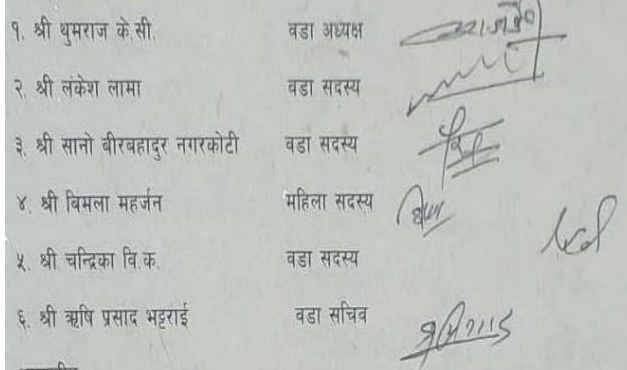 १. श्री थुमराज के.सी. वडा अध्यक्ष
२. श्री लंकेश लामा वडा सदस्य
३. श्री सानो बीरबहादुर नगरकोटी वडा सदस्य
४. श्री बिमला महर्जन महिला सदस्य
५. श्री चन्द्रिका वि.क. वडा सदस्य
६. श्री ऋषि प्रसाद भट्टराई वडा सचिव